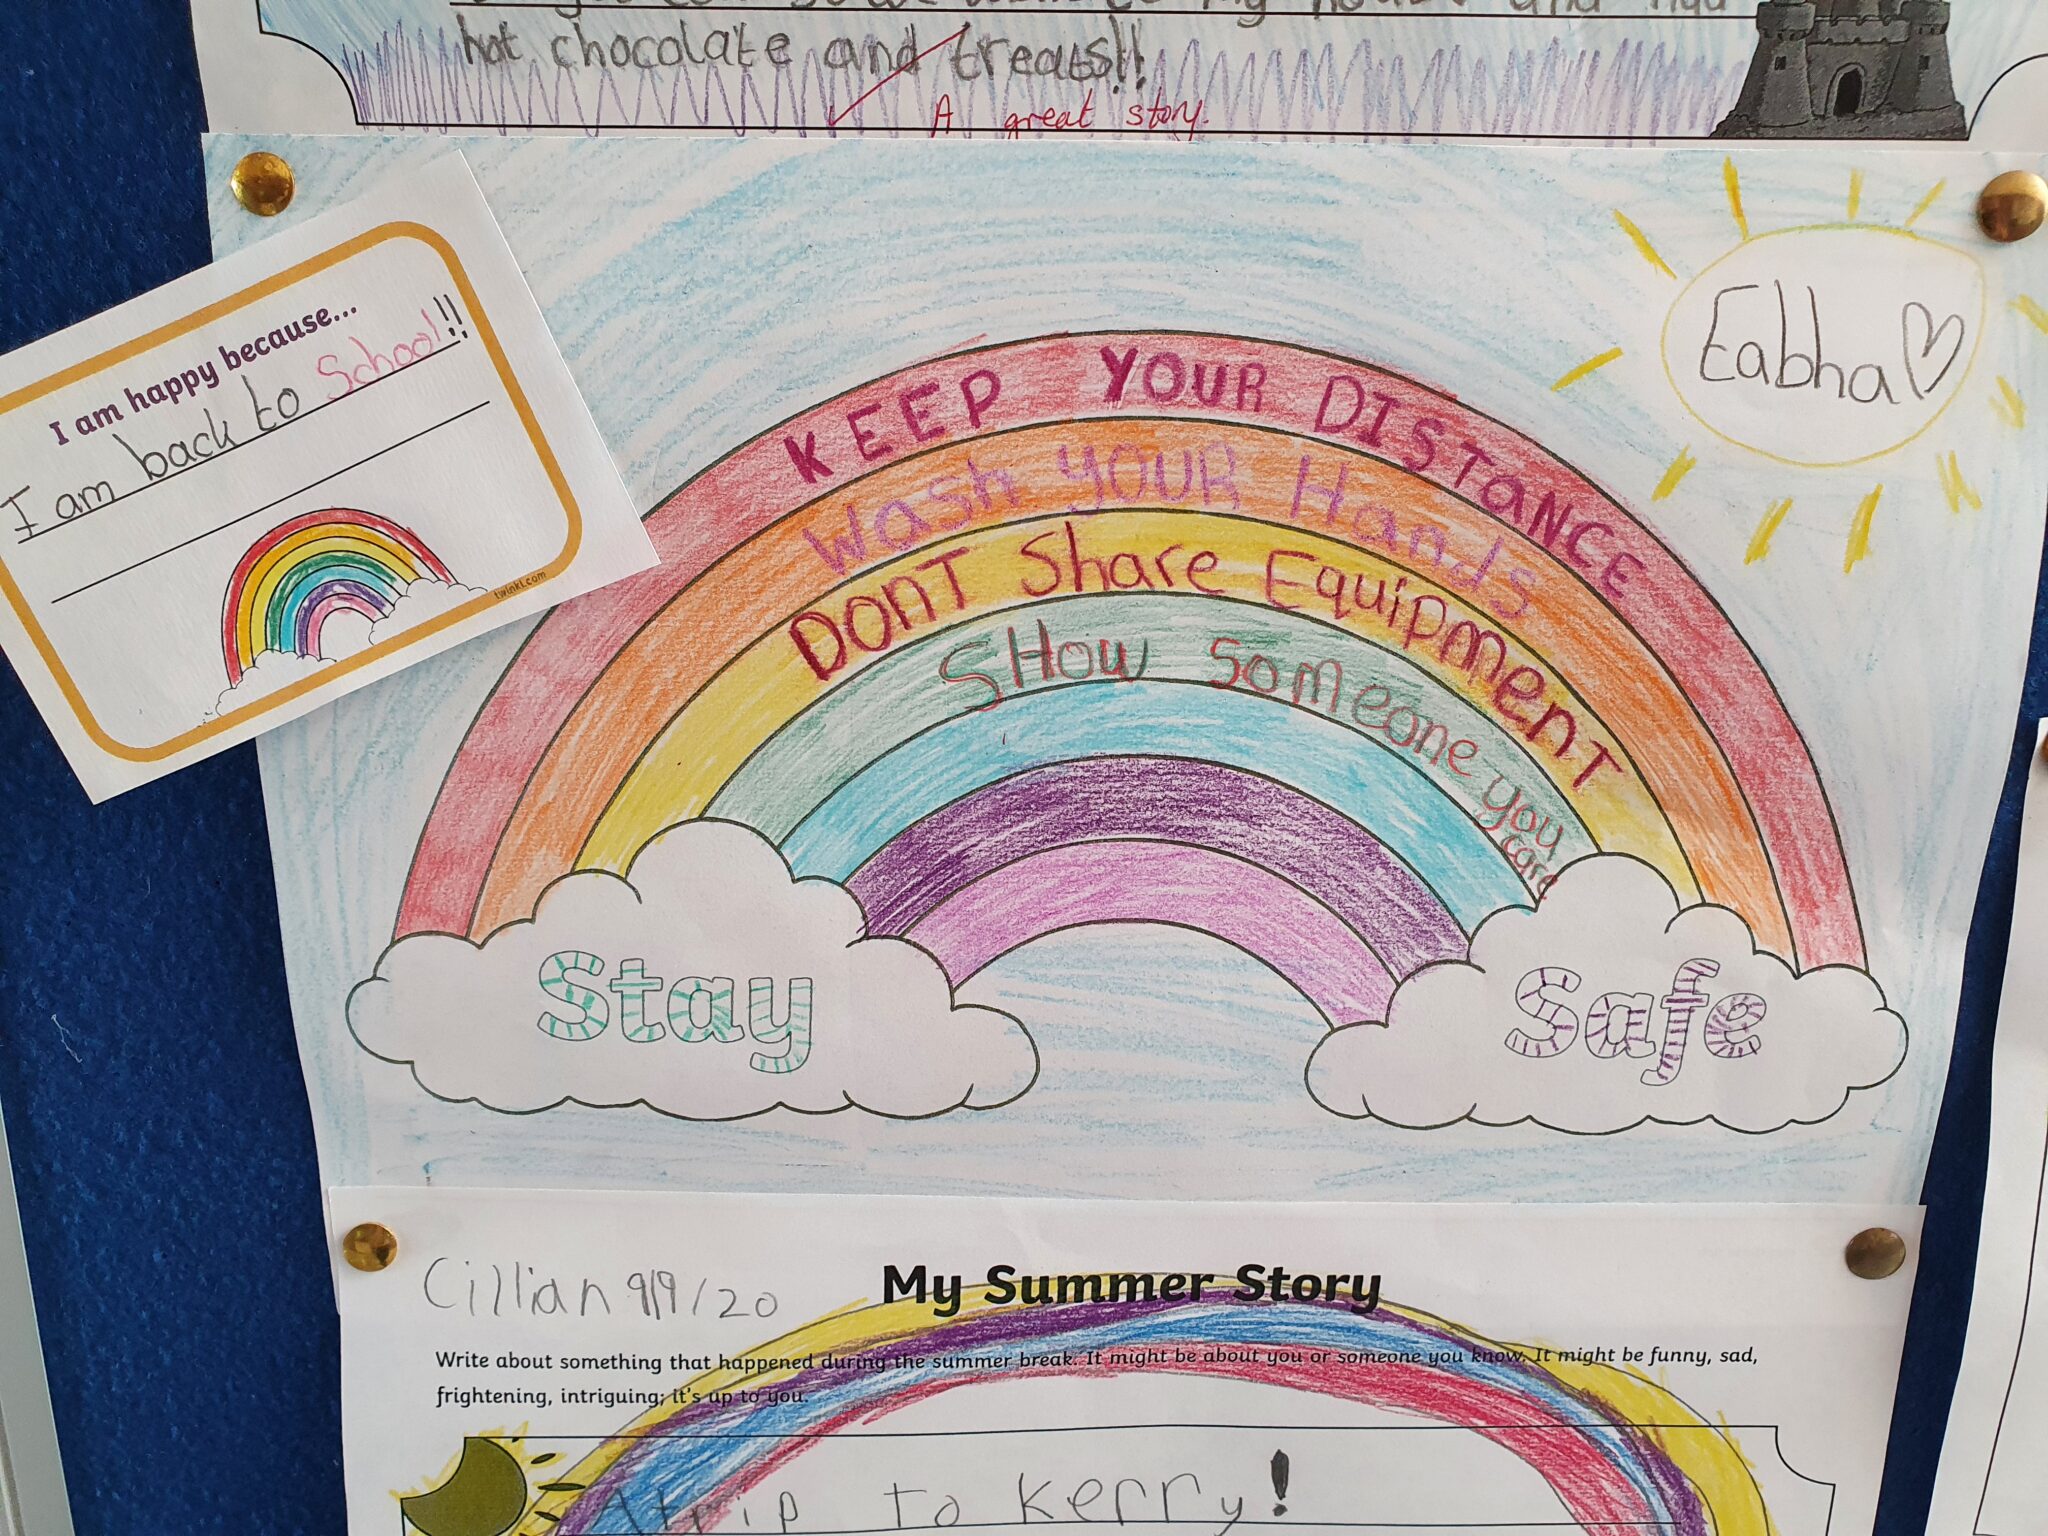 my house and had
hot chocolate and treats!!
A great story.
I am happy because...
I am back to School!!
twinkl.com
Eabha
KEEP YOUR DISTANCE
Wash YOUR Hands
DONT Share Equipment
SHow Someone you
care
Stay
Safe
Cillian 9/9/20
My Summer Story
Write about something that happened during the summer break. It might be about you or someone you know. It might be funny, sad,
frightening, intriguing; it's up to you.
A trip to Kerry!